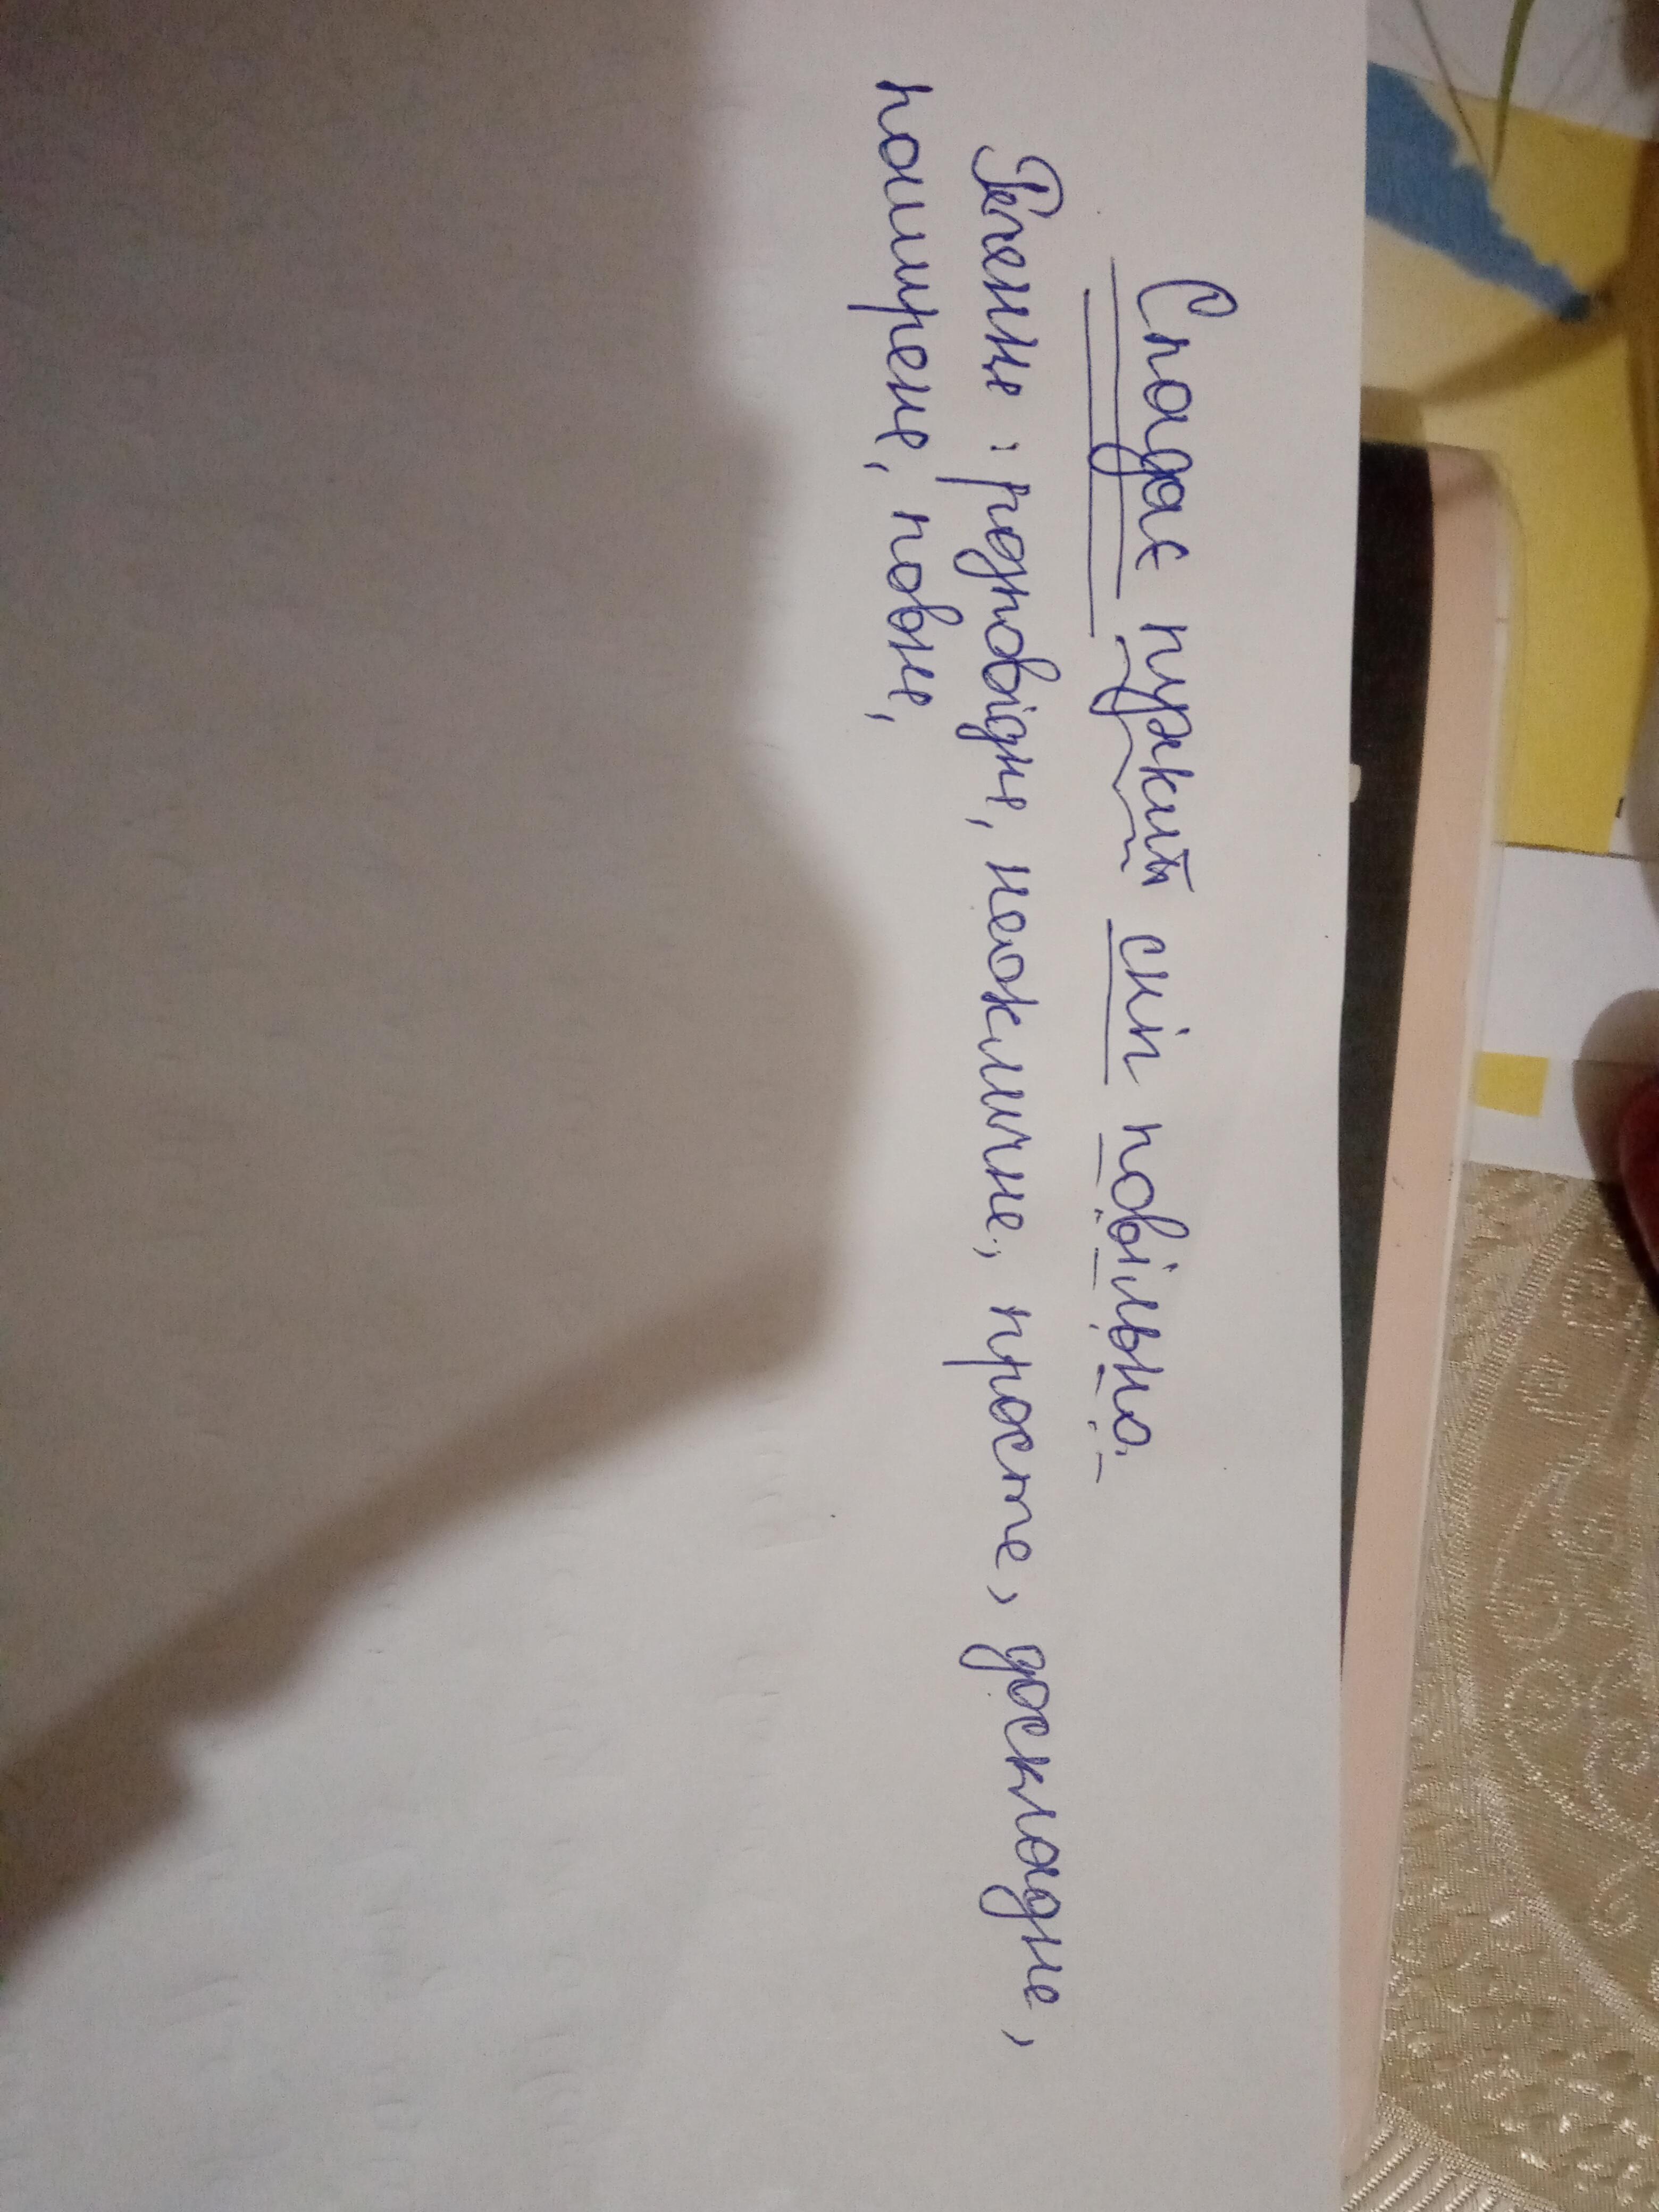 Спадає пухкий сніг повільно.
Речення: розповідне, неокличне, просте, доскладне,
поширене, повне,